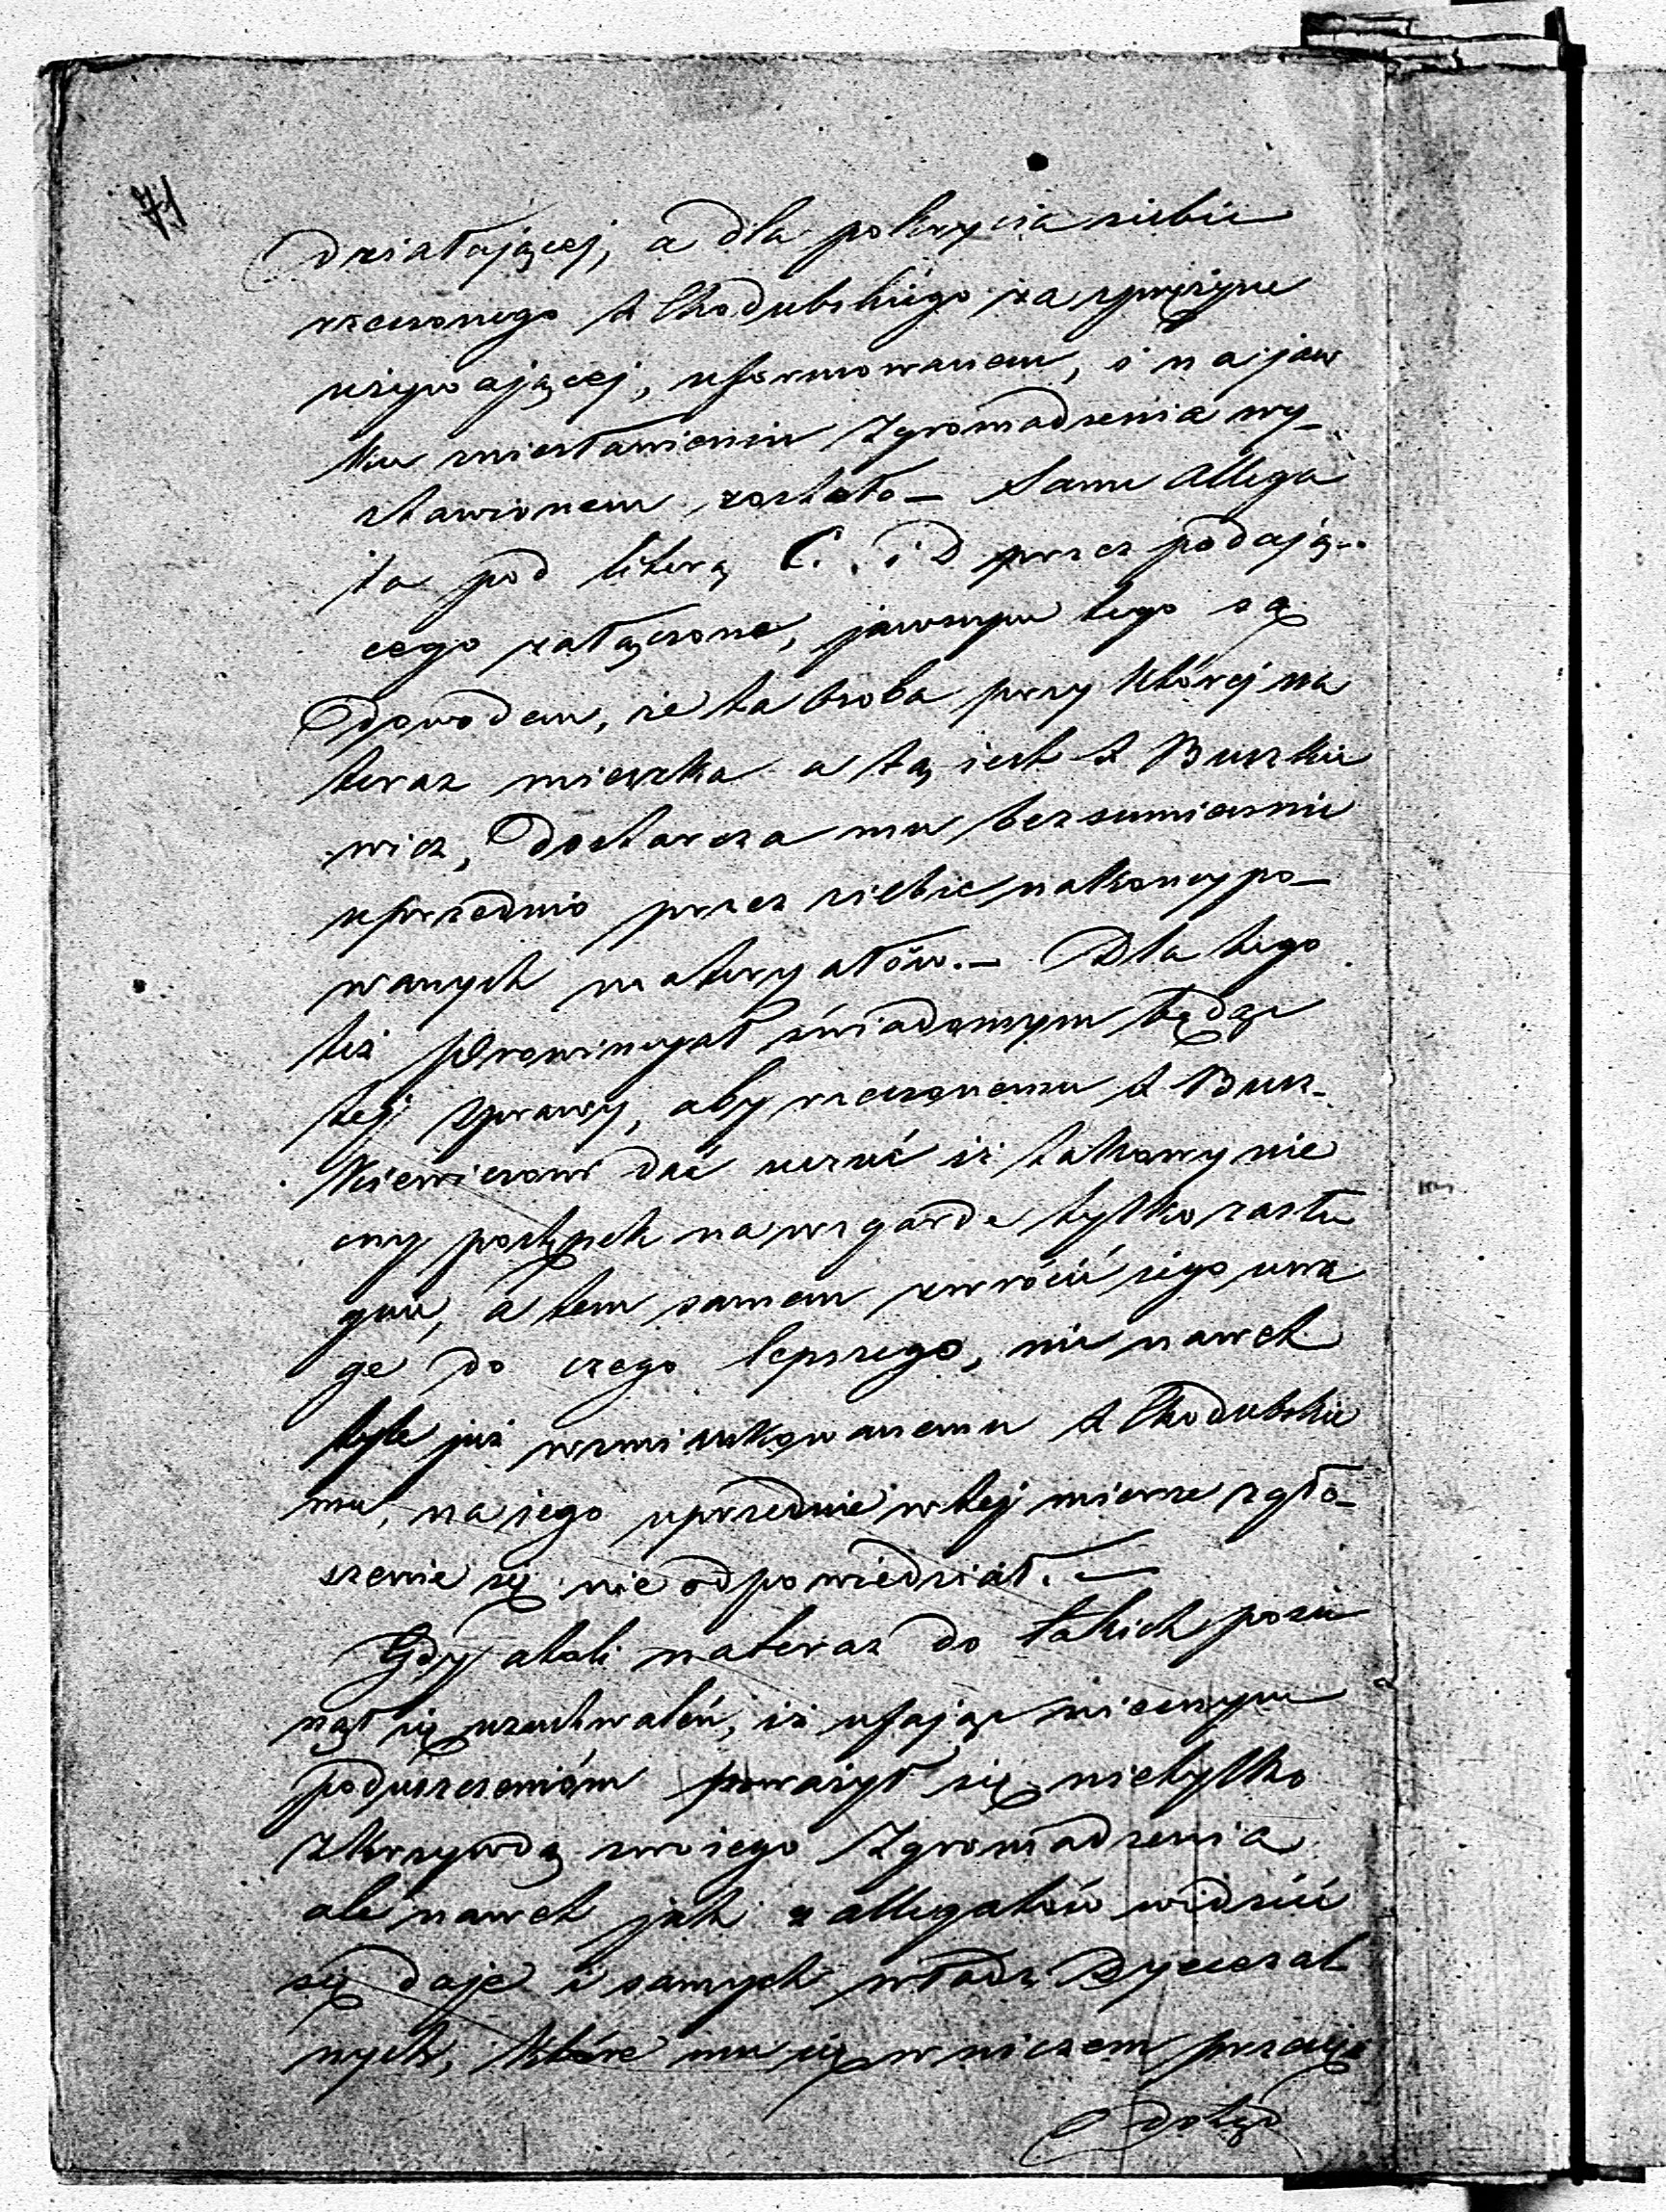 71
działającej, a dla pokrycia siebie
rzeczonego X Chodubskiego za sprężynę
używającej, uformowanem, i na jaw
ku zniesławieniu Zgromadzenia wy_
stawionem zostało_ Same Allega
ta pod literą C. i D przez podają_
cego załączone, jawnym tego są
dowodem, że ta osoba przy której na
teraz mieszka a tą iest X Buzkie
wicz, dostarcza mu bezsumiennie
uprzednio przez siebie nakoncypo_
wanych materyałów._ Dla tego
też Prowincyał świadomym będąc
tej sprawy, aby rzeczonemu X Buz_
kiewiczowi dać uczuć iż takowy nie
cny postępek na wzgardę tylko zasłu
guie, a tem samem zwrócić jego uwa
gę do czego lepszego, nie nawet
tyle już wzmiankowanemu X Chodubskie
mu, na jego uprzednie w tej mierze zgło_
szenie się nie odpowiedział._
Gdy atoli na teraz do takich posu
nął się uzuchwaleń, iż ufając niecnym
podpuszczeniom poważył się nietylko
z krzywdą swoiego Zgromadzenia
ale nawet jak z allegatów widzieć
się daje i samych władz Dyecezal
nych, które mu się w niczem przecię
dotąd